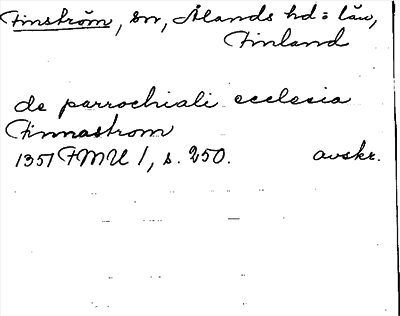 Finström, sn, Ålands hd = län,
Finland
de parrochiali ecclesia
Finnastrom
1351 FMU 1, s. 250. avskr.